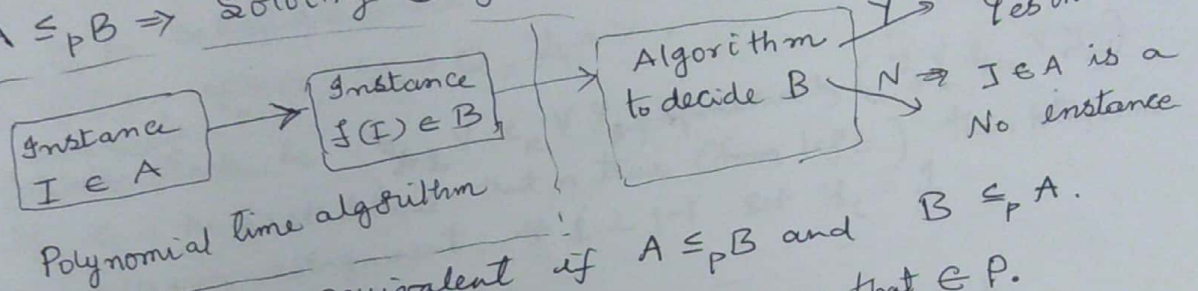 A ≤pB ⇒ Solving
Instance
I ∈ A
Instance
f(I) ∈ B
Algorithm
to decide B
Y
N ⇒ I ∈ A is a
No enstance
Polynomial time algorithm
if A ≤pB and B ≤p A.
that ∈ P.